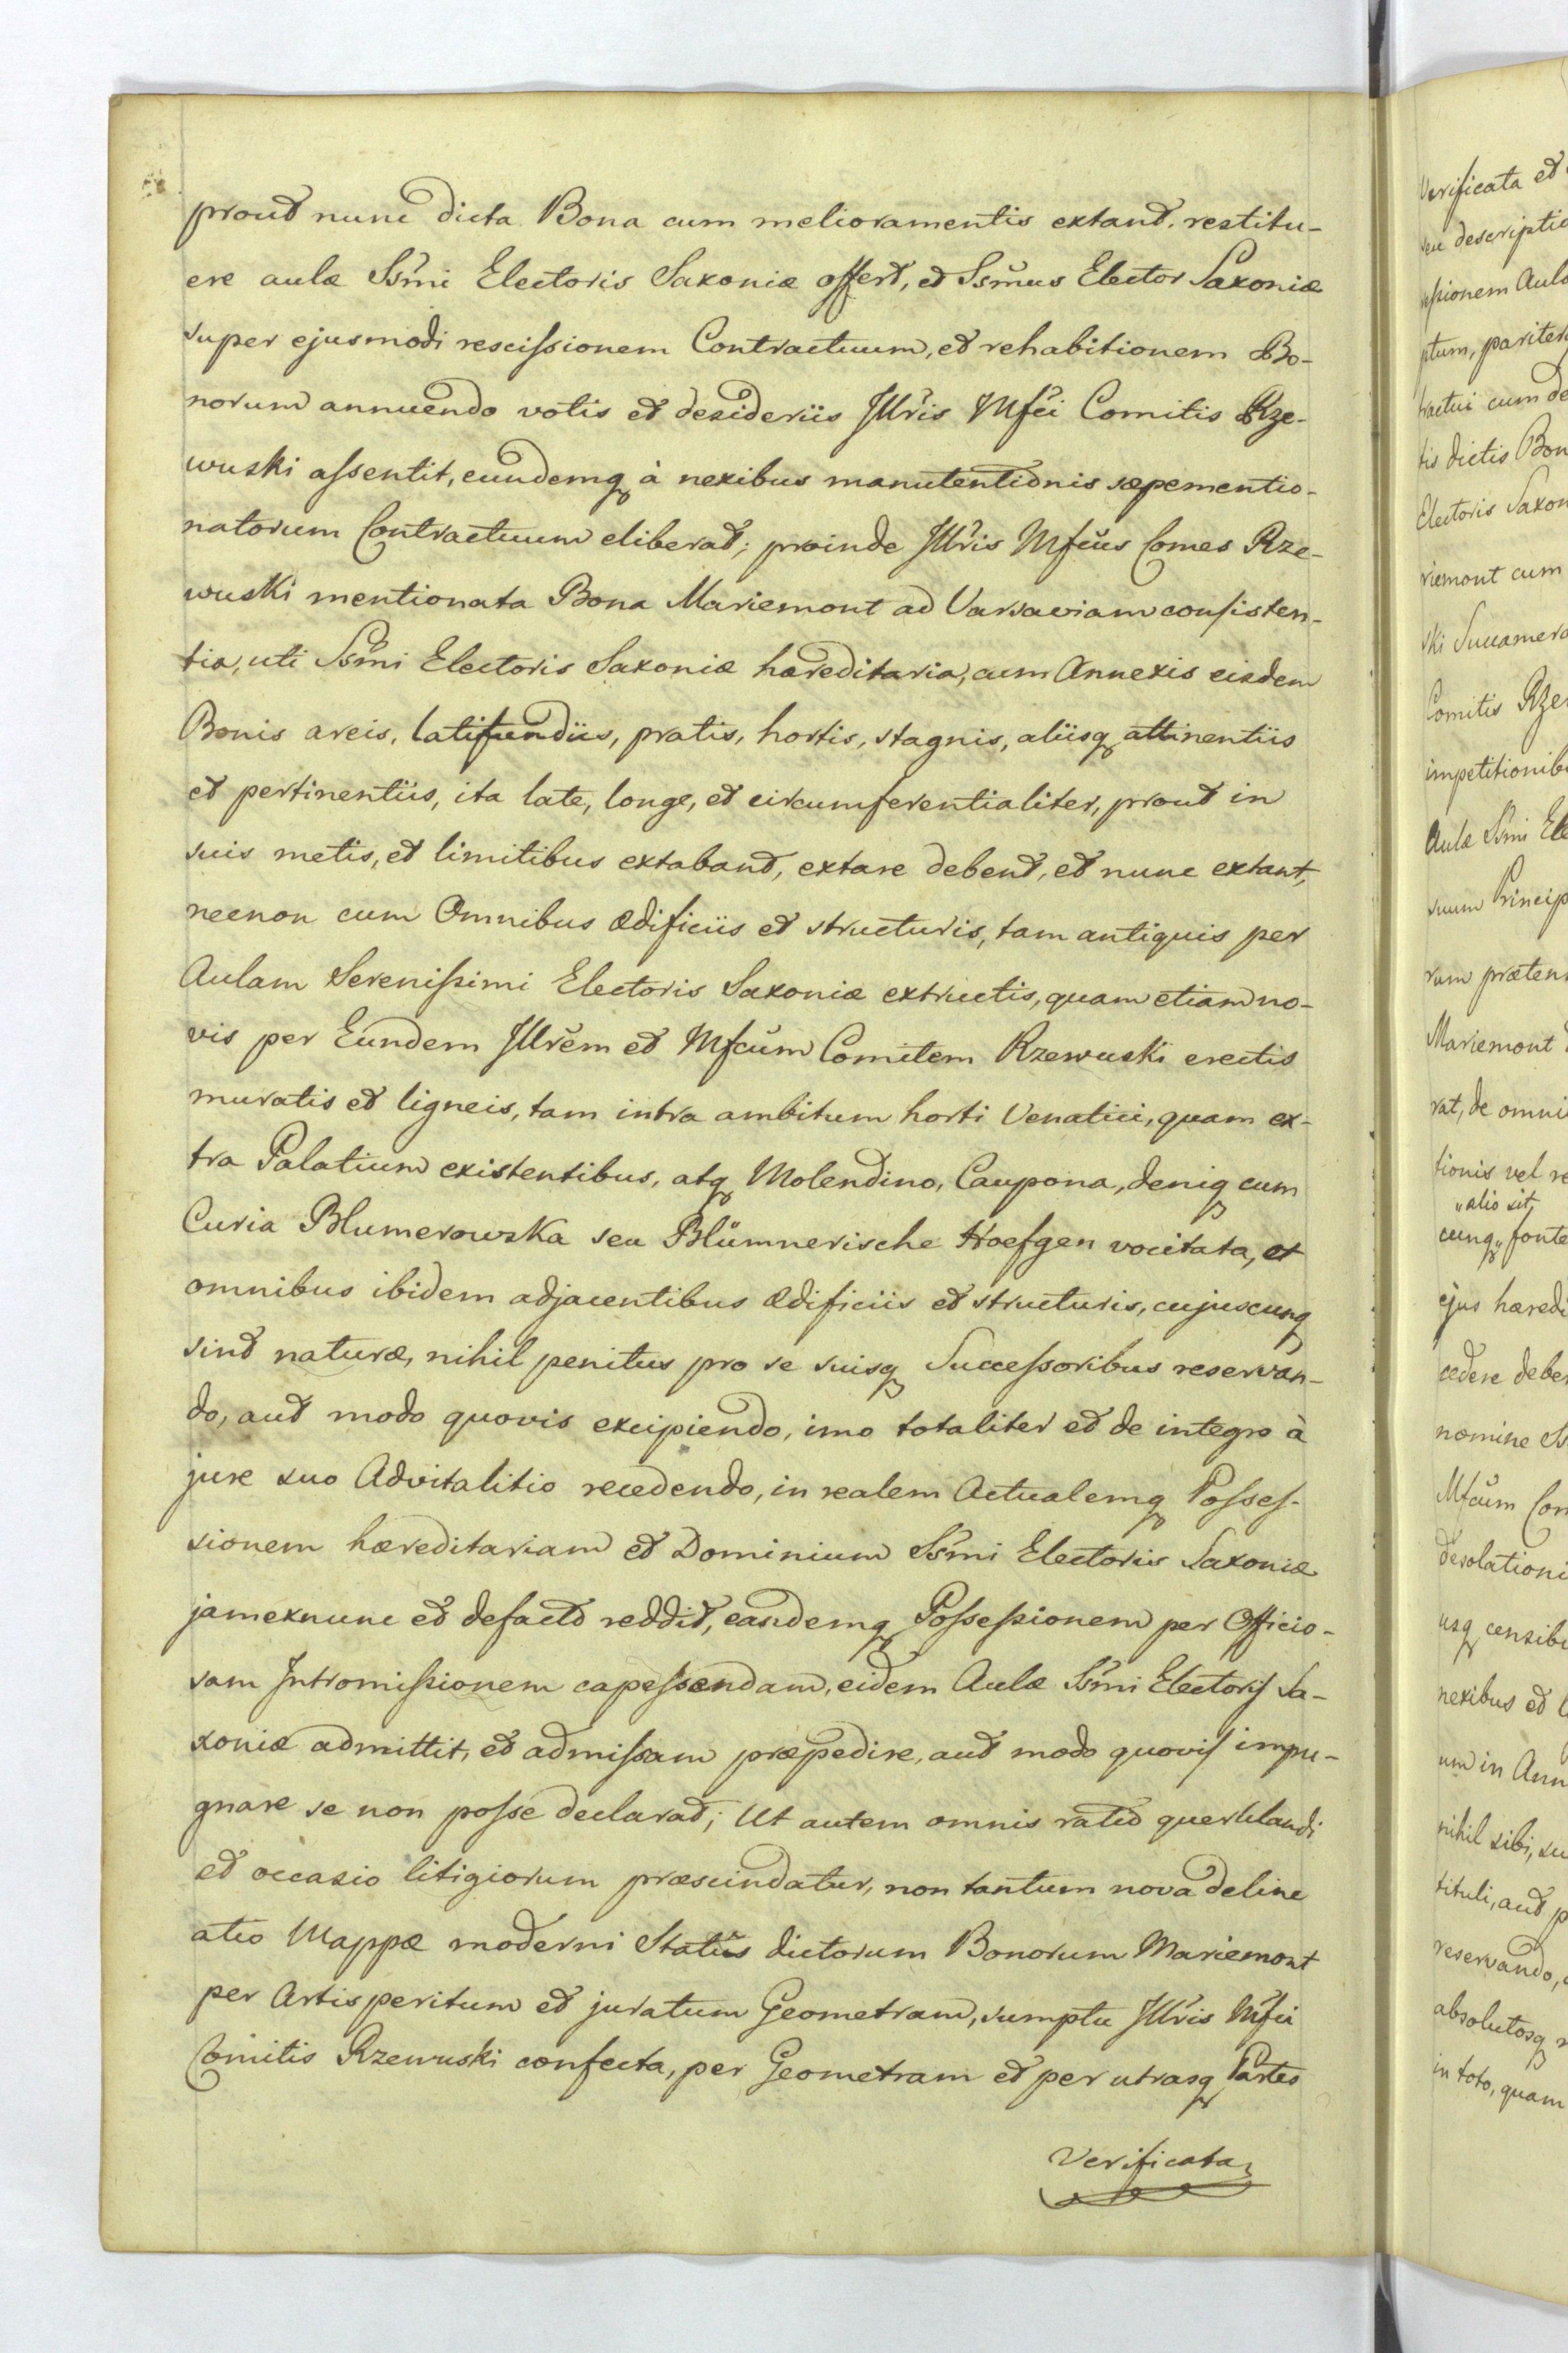 prout nunc dicta Bona cum melioramentis extant, restitu-
ere aulæ Ssm̃i Electoris Saxoniæ offert, et Ssm̃us Elector Saxoniæ
super ejusmodi rescissionem Contractuum, et rehabitionem Bo-
norum annuendo votis et desideriis Illr̃is Mfc̃i Comitis Rze-
wuski assentit, eundemq à nexibus manutentionis sæpementio-
natorum Contractuum eliberat; proinde Illr̃is Mfcũs Comes Rze-
wuski mentionata Bona Mariemont ad Varsaviam consisten-
tia, uti Ssm̃i Electoris Saxoniæ hæreditaria, cum Annexis eisdem
Bonis areis, latifundiis, pratis, hortis, stagnis, aliisq attinentiis
et pertinentiis, ita late, longe, et circumferentialiter, prout in
suis metis, et limitibus extabant, extare debent, et nunc extant,
necnon cum Omnibus ædificiis et structuris, tam antiquis per
Aulam Serenissimi Electoris Saxoniæ extructis, quam etiam no-
vis per Eundem Illrẽm et Mfcũm Comitem Rzewuski erectis
muratis et ligneis, tam intra ambitum horti Venatici, quam ex-
tra Palatium existentibus, atq Molendino, Caupona, deniq cum
Curia Blumerowska seu Blümnerische Hoefgen vocitata, et
omnibus ibidem adjacentibus ædificiis et structuris, cujuscunq
sint naturæ, nihil penitus pro se suisq Successoribus reservan-
do, aut modo quovis excipiendo, imo totaliter et de integro à
jure suo Advitalitio recedendo, in realem Actualemq Posses-
sionem hæreditariam et Dominium Ssm̃i Electoris Saxoniæ
jamexnunc et defacto reddit, eandemq Possessionem per Officio-
sam Intromissionem capessendam, eidem Aulæ Ssm̃i Electoris Sa-
xoniæ admittit, et admissam præpedire, aut modo quovis impu-
gnare se non posse declarat; Ut autem omnis ratio querulandi
et occasio litigiorum præscindatur, non tantum nova deline
atio Mappæ moderni Statûs dictorum Bonorum Mariemont
per Artis peritum et juratum Geometram, sumptu Illr̃is Mfc̃i
Comitis Rzewuski confecta, per Geometram et per utrasq Partes
Verificata
Verificata et
seu descriptio
Aula
ptum, pariter
tractui cum de
tis dictis Bon
Electoris Saxon
riemont cum
ski Succamera
Comitis Rze
impetitionib
Aulæ Ssm̃i Ele
suum Princip
rum præten
Mariemont
rat, de omni
tionis vel re
„alio sit
cunq„ fonte
ejus hæredi
cedere debe
nomine Ss
Mfcũm Com
desolationi
usq censib
nexibus et
um in Ann
nihil sibi, su
tituli, aut p
reservando,
absolutosq
in toto, quam